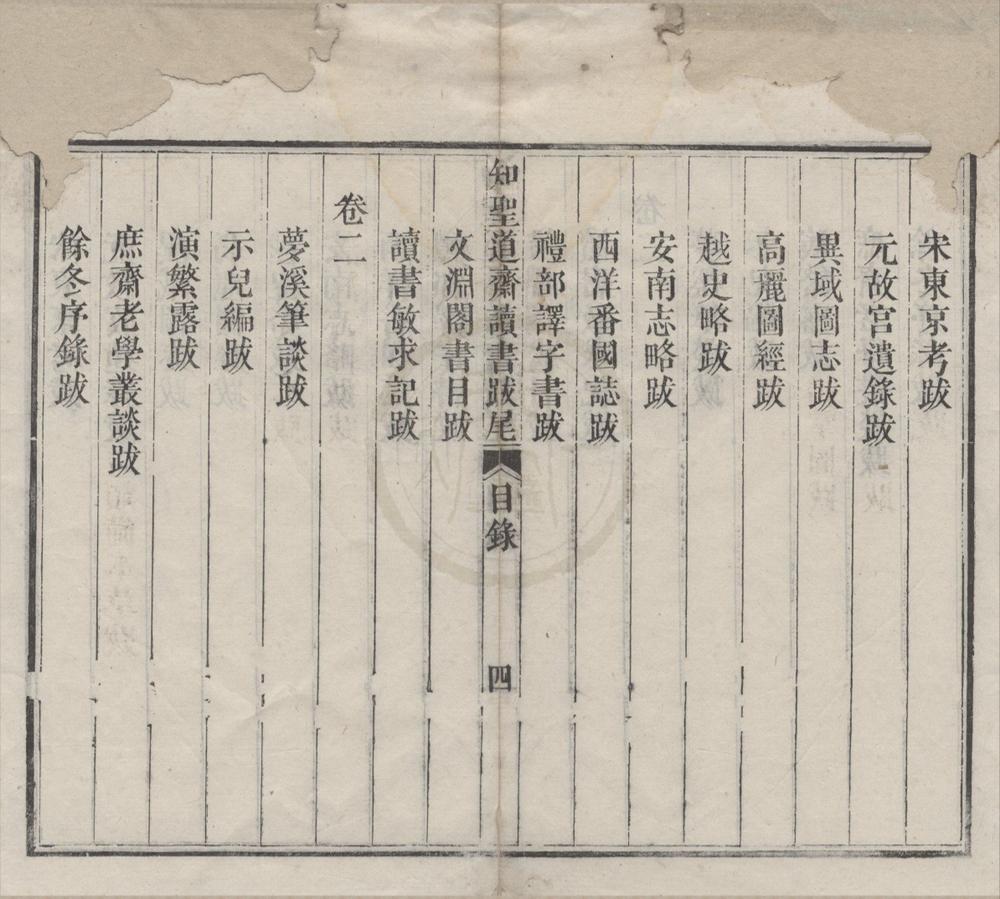 宋東京考跋
元故宮遺錄跋
異域圖志跋
高麗圖經跋
越史略跋
安南志略跋
西洋番國誌跋
禮部譯字書跋
知聖道齋讀書跋尾 目錄 四
文淵閣書目跋
讀書敏求記跋
卷二
夢溪筆談跋
示兒編跋
演繁露跋
庶齋老學叢談跋
餘冬序錄跋